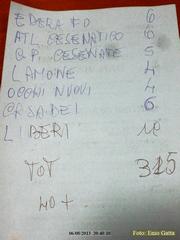 EDERA FO 6
ATL CESENATICO 6
G.P. CESENATE 5
LAMONE 4
OCCHI NUOVI 4
CASADEI 6
LIBERI
TOT 315
40 +
06/08/2013 20:40:10
Foto: Enzo Gatta